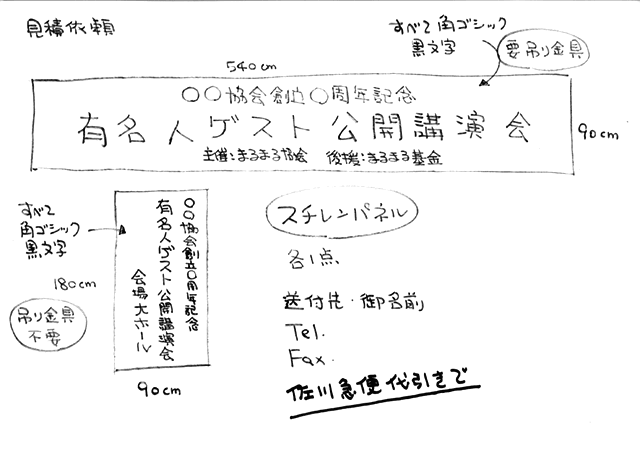 見積依頼
すべて角ゴシック
黒文字
要吊り金具
540cm
〇〇協会創立〇周年記念
有名人ゲスト公開講演会
主催:まるまる協会 後援:まるまる基金
90cm
すべて
角ゴシック
黒文字
180cm
吊り金具
不要
〇〇協会創立〇周年記念
有名人ゲスト公開講演会
会場大ホール
90cm
スチレンパネル
各1点
送付先・御名前
Tel.
Fax.
佐川急便代引きで